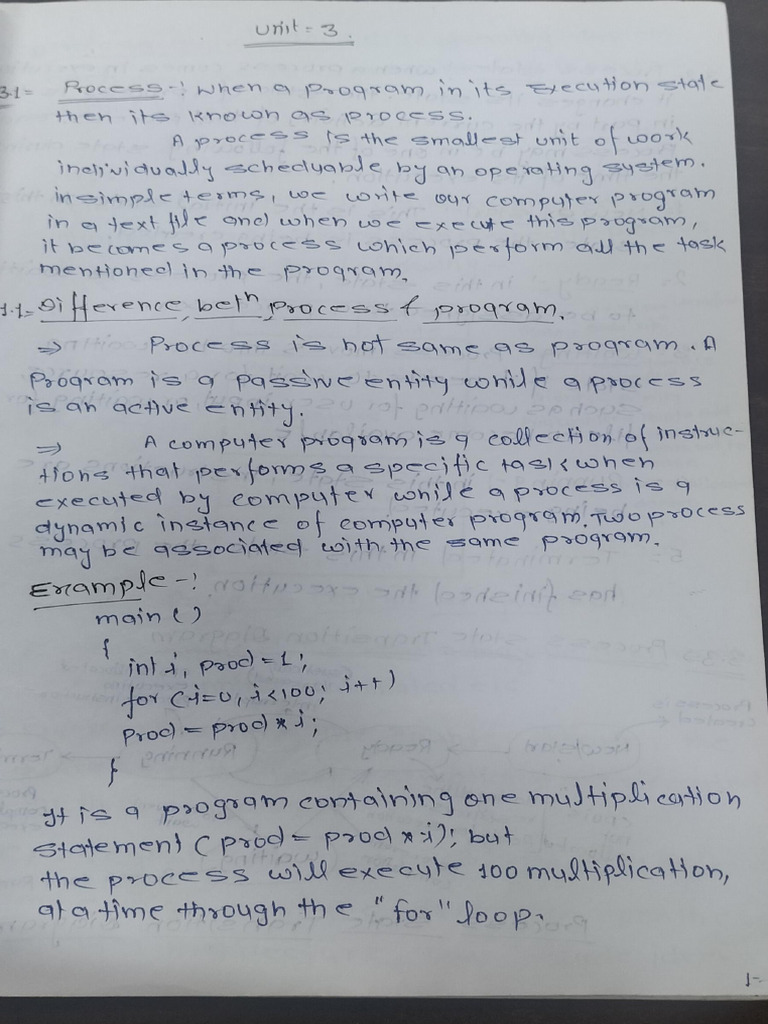 Unit = 3.
3.1= Process -: when a program in its Execution state
then its known as process.
A process is the smallest unit of work
individually schedyable by an operating system.
in simple terms, we write our computer program
in a text file and when we execute this program,
it becomes a process which perform all the task
mentioned in the program.
1.1= Difference betn process & program.
⇒ Process is not same as program. A
Program is a Passive entity while a process
is an active entity.
⇒ A computer program is a collection of instruc-
tions that performs a specific task when
executed by computer while a process is a
dynamic instance of computer program. Two process
may be associated with the same program.
Example -:
main ()
{
int i, prod = 1;
for (i=0, i<100; i++)
Prod = prod * i;
}
It is a program containing one multiplication
statement (prod = prod * i); but
the process will execute 100 multiplication,
at a time through the "for" loop.
1-